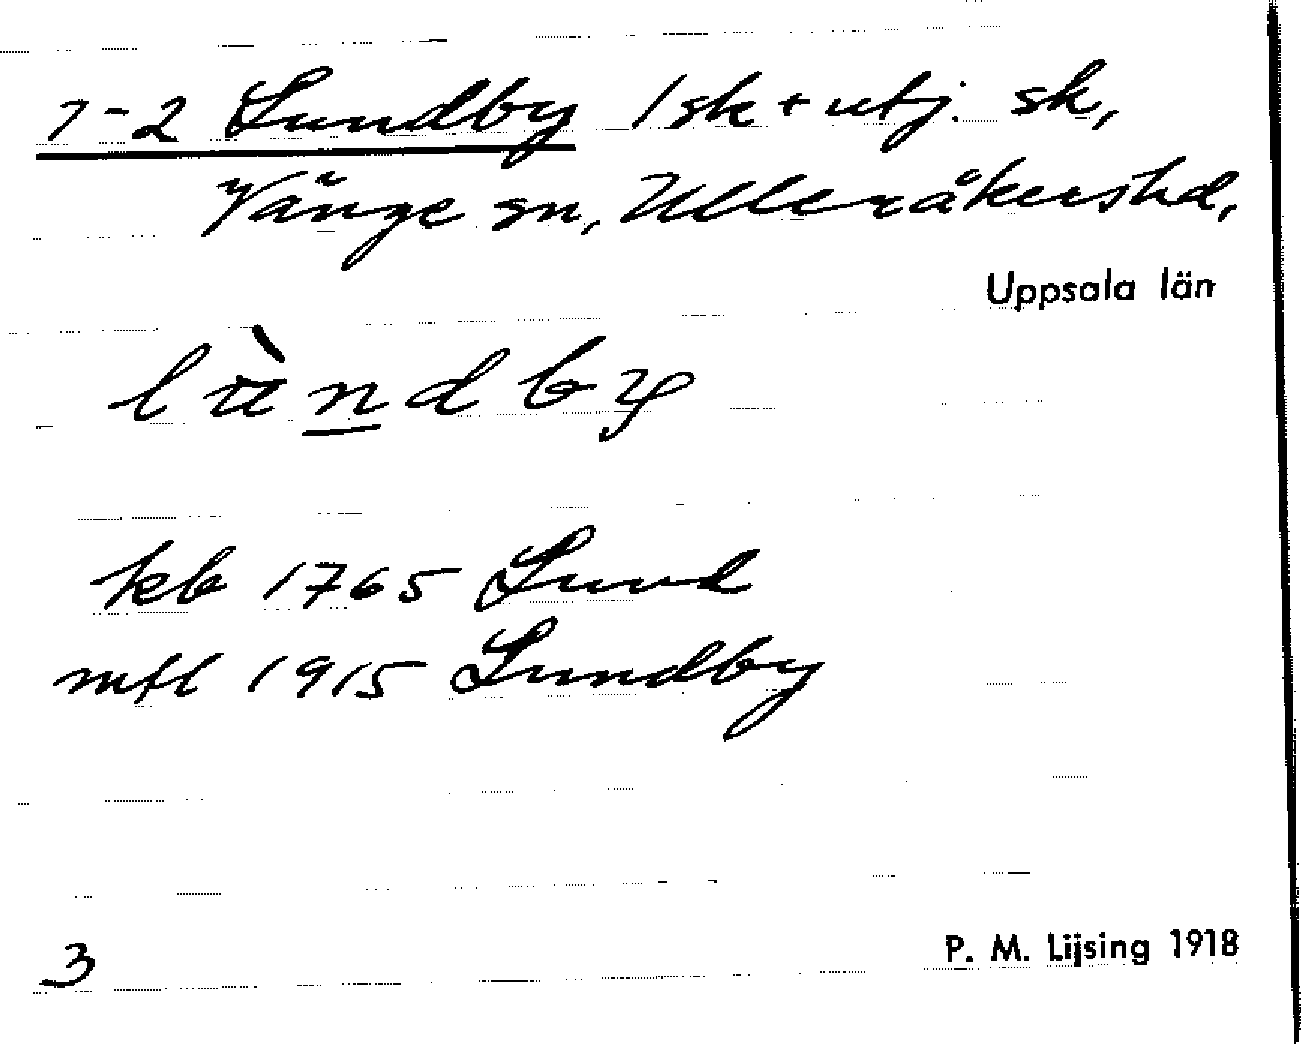 1-2 Lundby 1 sk + utj. sk,
Vänge sn, Ulleråkershd,
Uppsala län
lùndby
kb 1765 Lund
mtl 1915 Lundby
3
P. M. Lijsing 1918